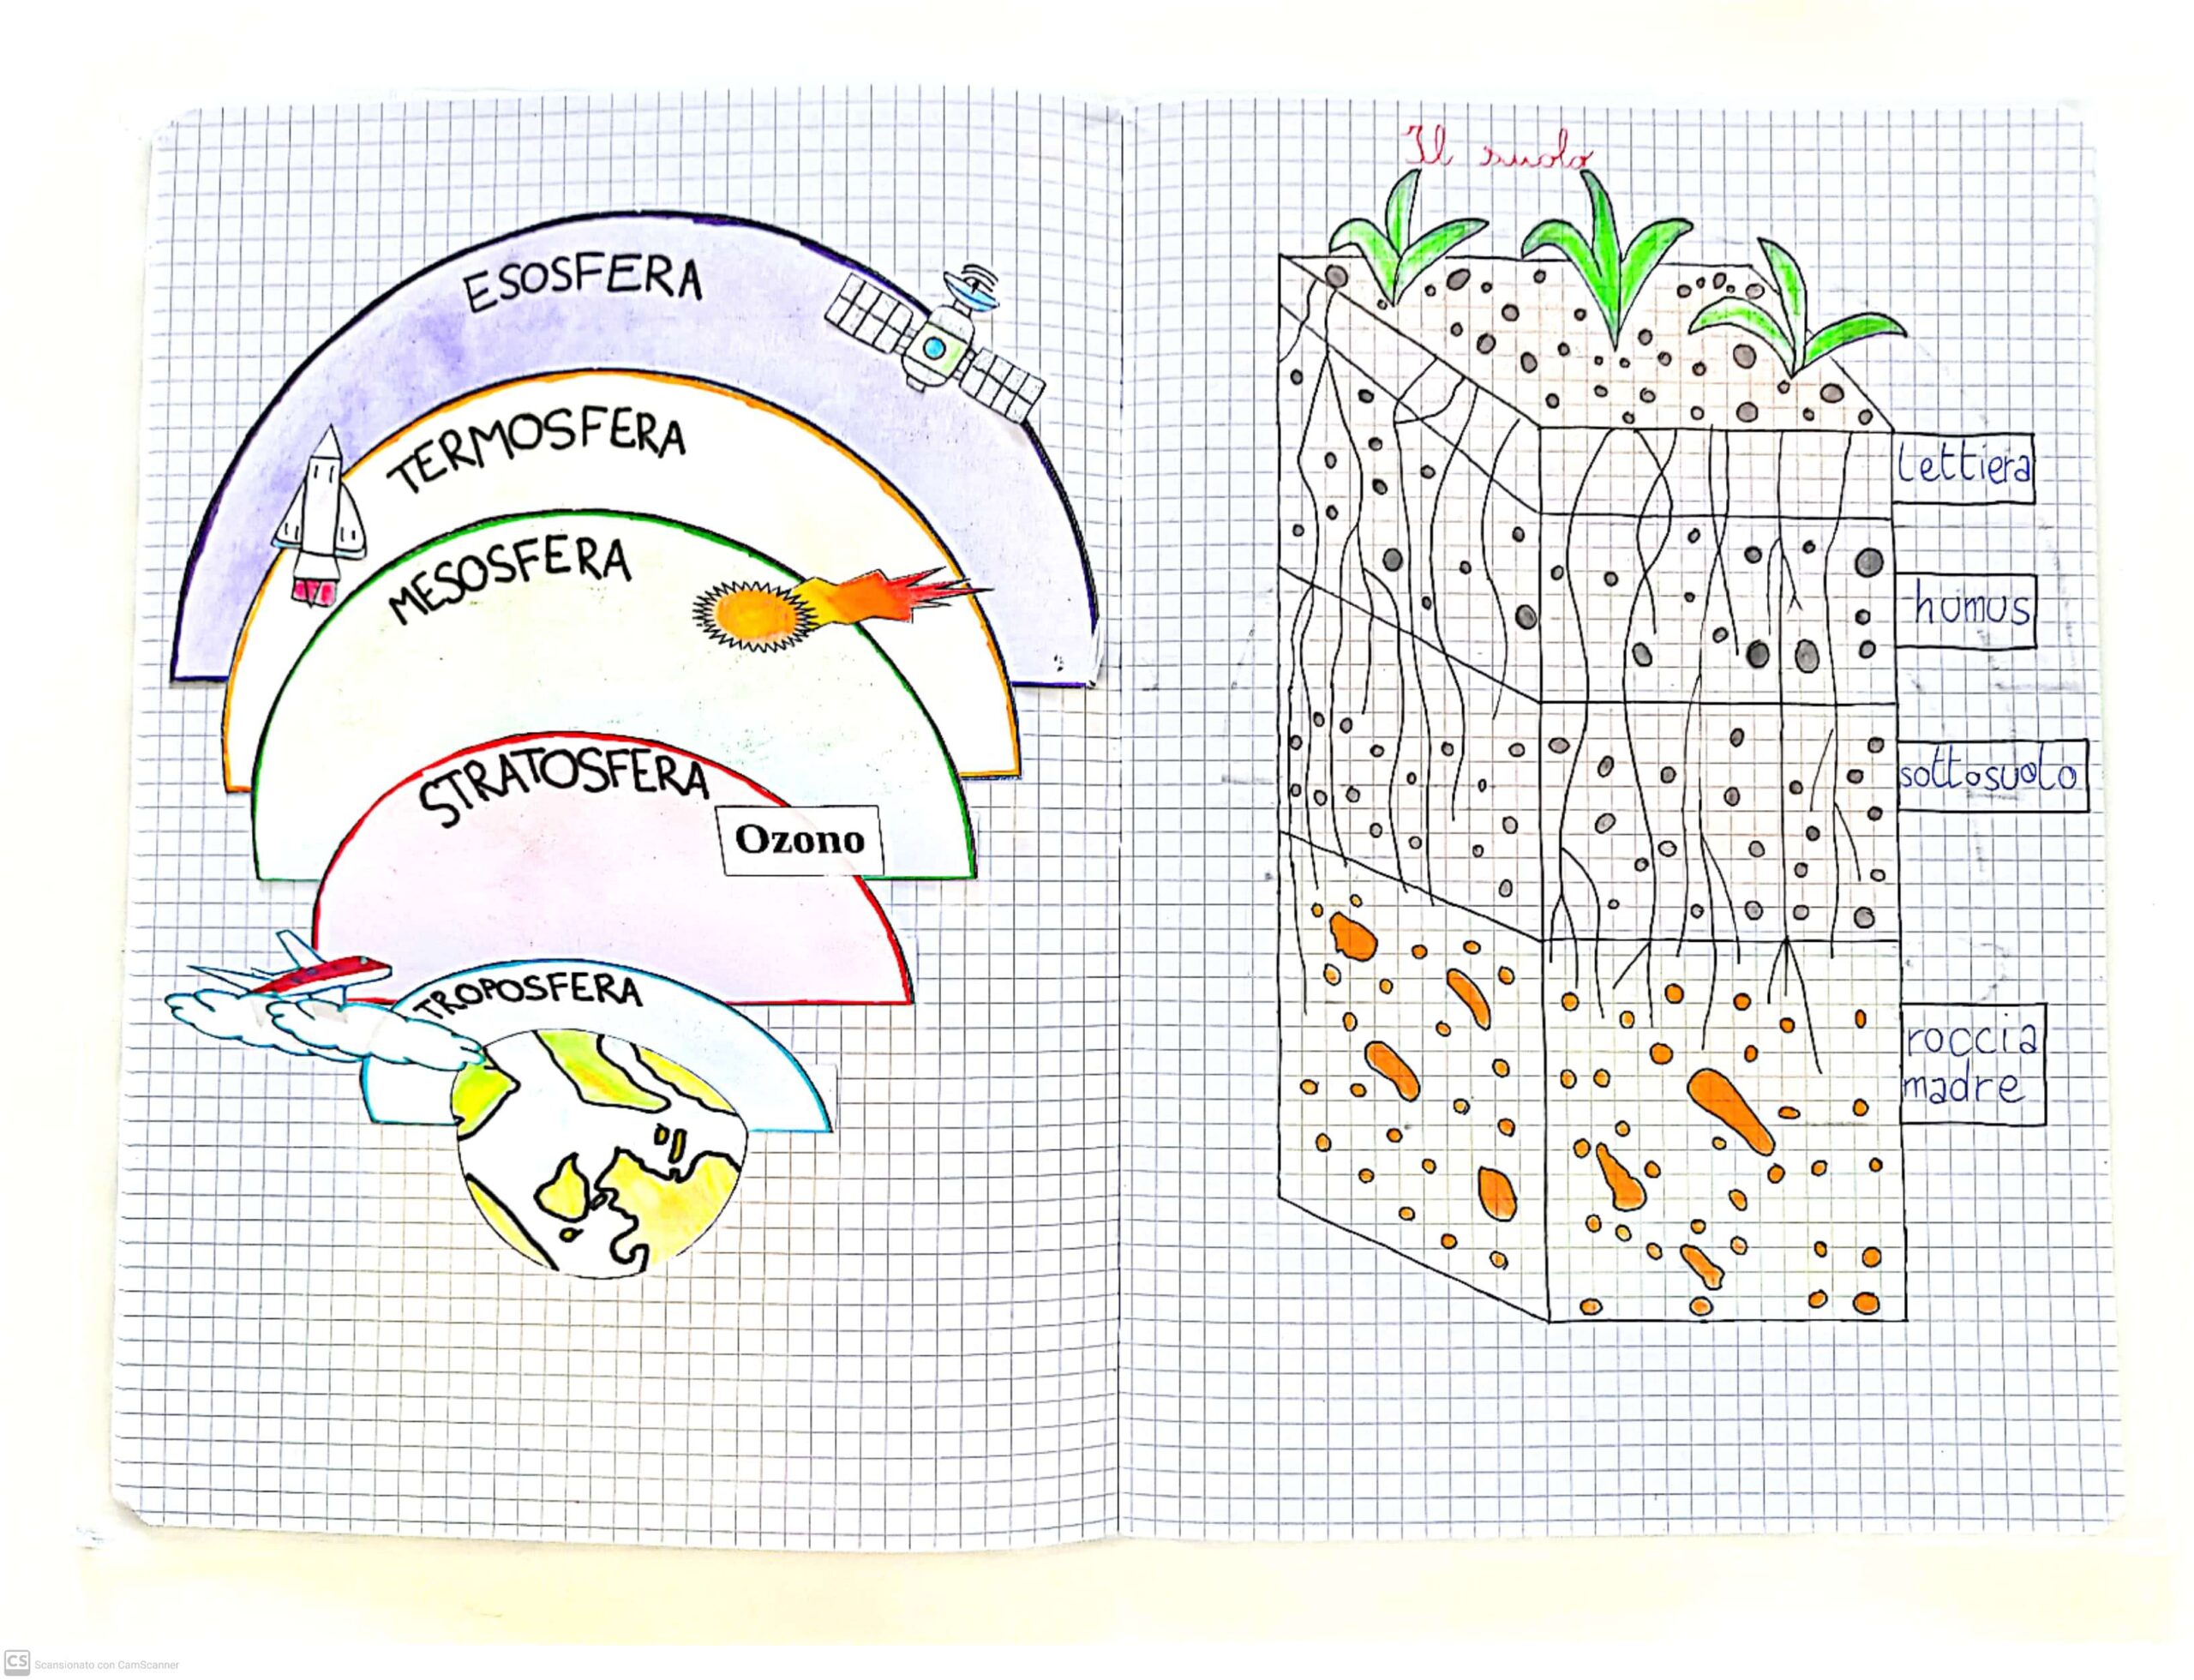 ESOSFERA
TERMOSFERA
MESOSFERA
STRATOSFERA
Ozono
TROPOSFERA
Il suolo
lettiera
humus
sottosuolo
roccia
madre
CS Scansionato con CamScanner